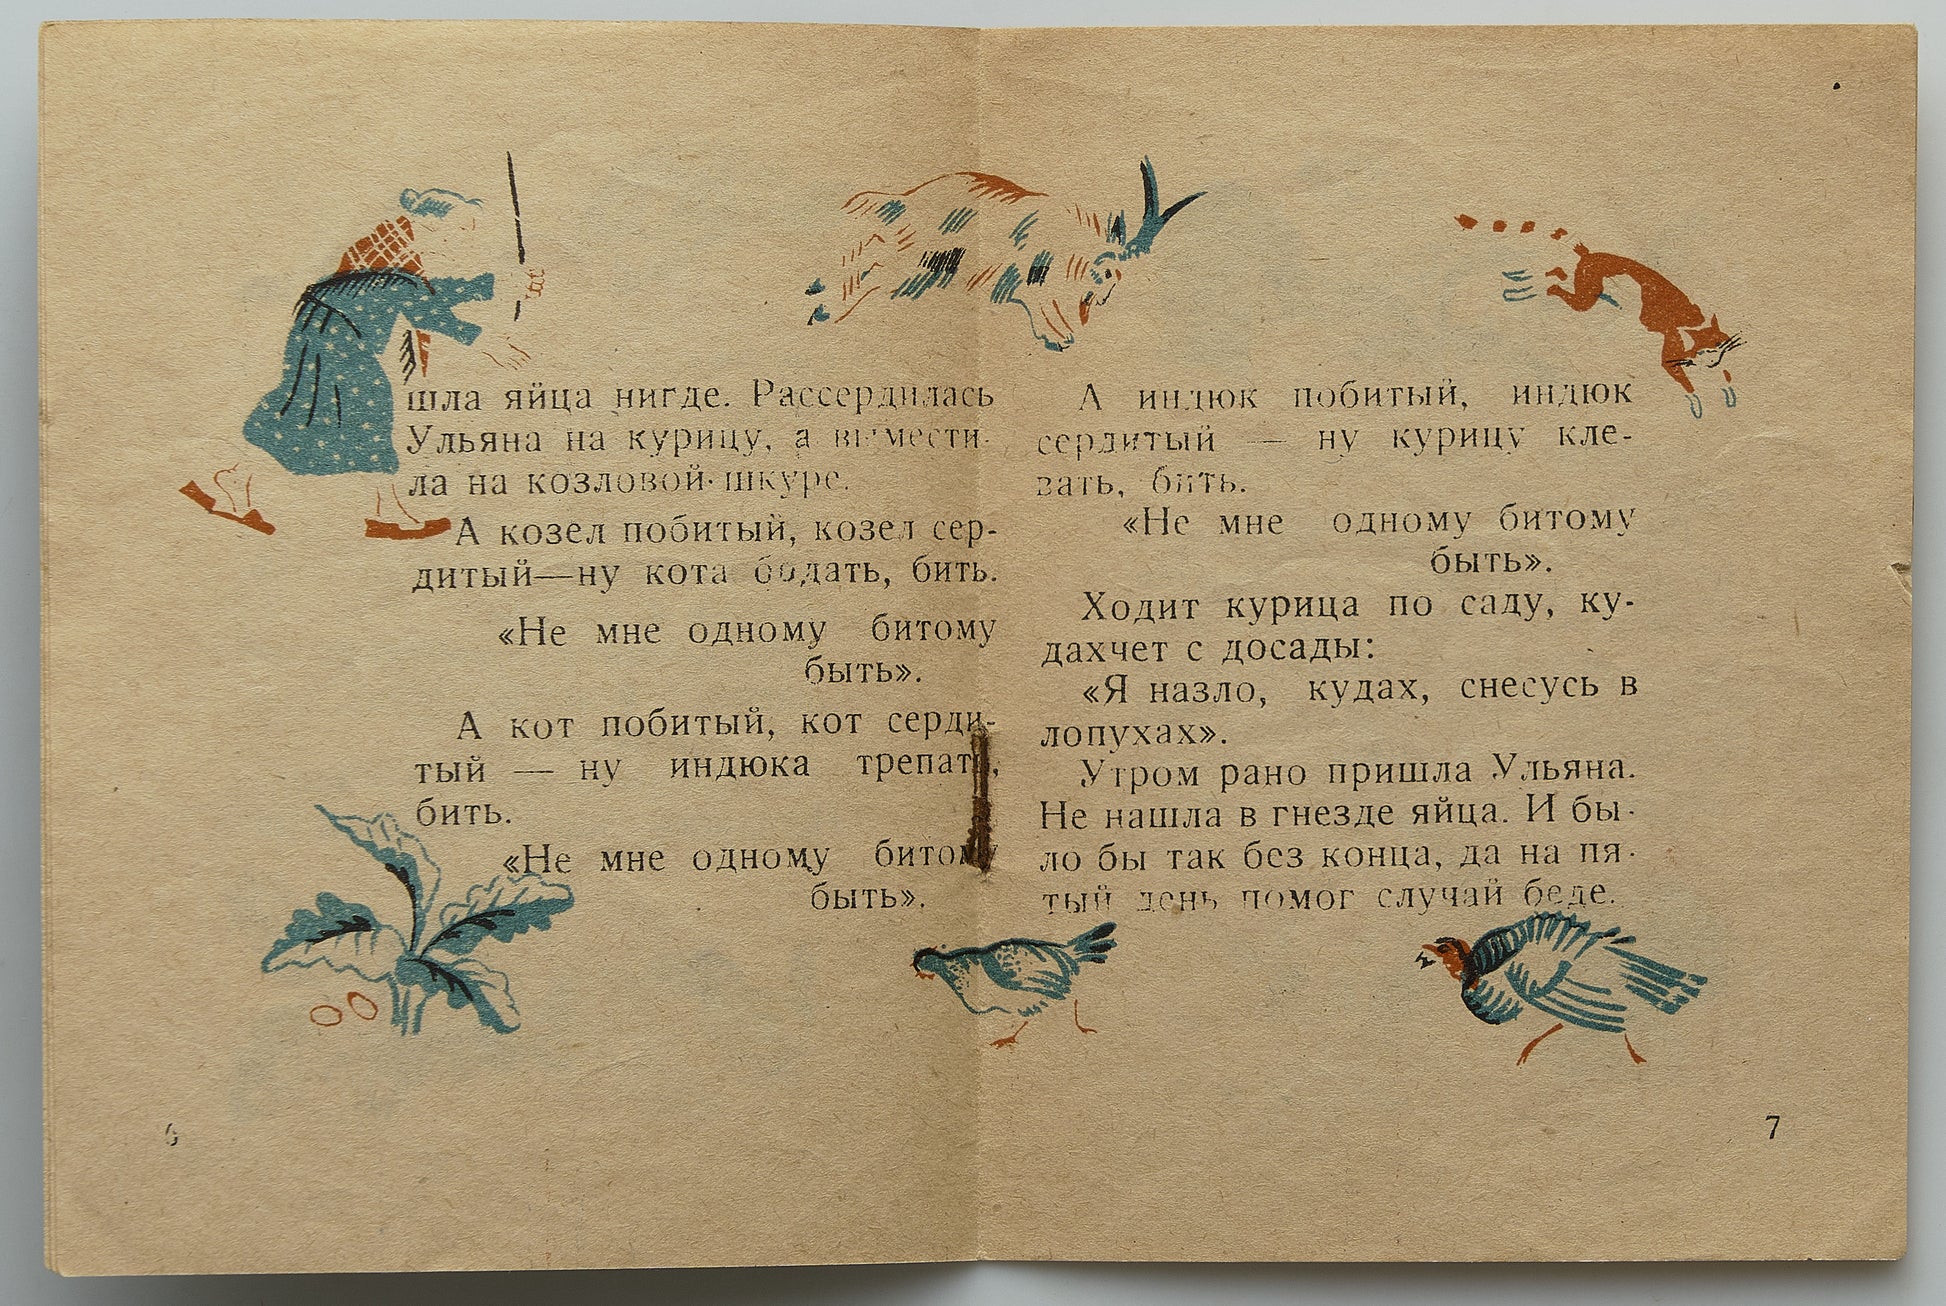 шла яйца нигде. Рассердилась
Ульяна на курицу, а вымести-
ла на козловой шкуре.
А козел побитый, козел сер-
дитый—ну кота бодать, бить.
«Не мне одному битому
быть».
А кот побитый, кот серди-
тый — ну индюка трепать,
бить.
«Не мне одному битому
быть».
6
А индюк побитый, индюк
сердитый — ну курицу кле-
вать, бить.
«Не мне одному битому
быть».
Ходит курица по саду, ку-
дахчет с досады:
«Я назло, кудах, снесусь в
лопухах».
Утром рано пришла Ульяна.
Не нашла в гнезде яйца. И бы-
ло бы так без конца, да на пя-
тый день помог случай беде.
7